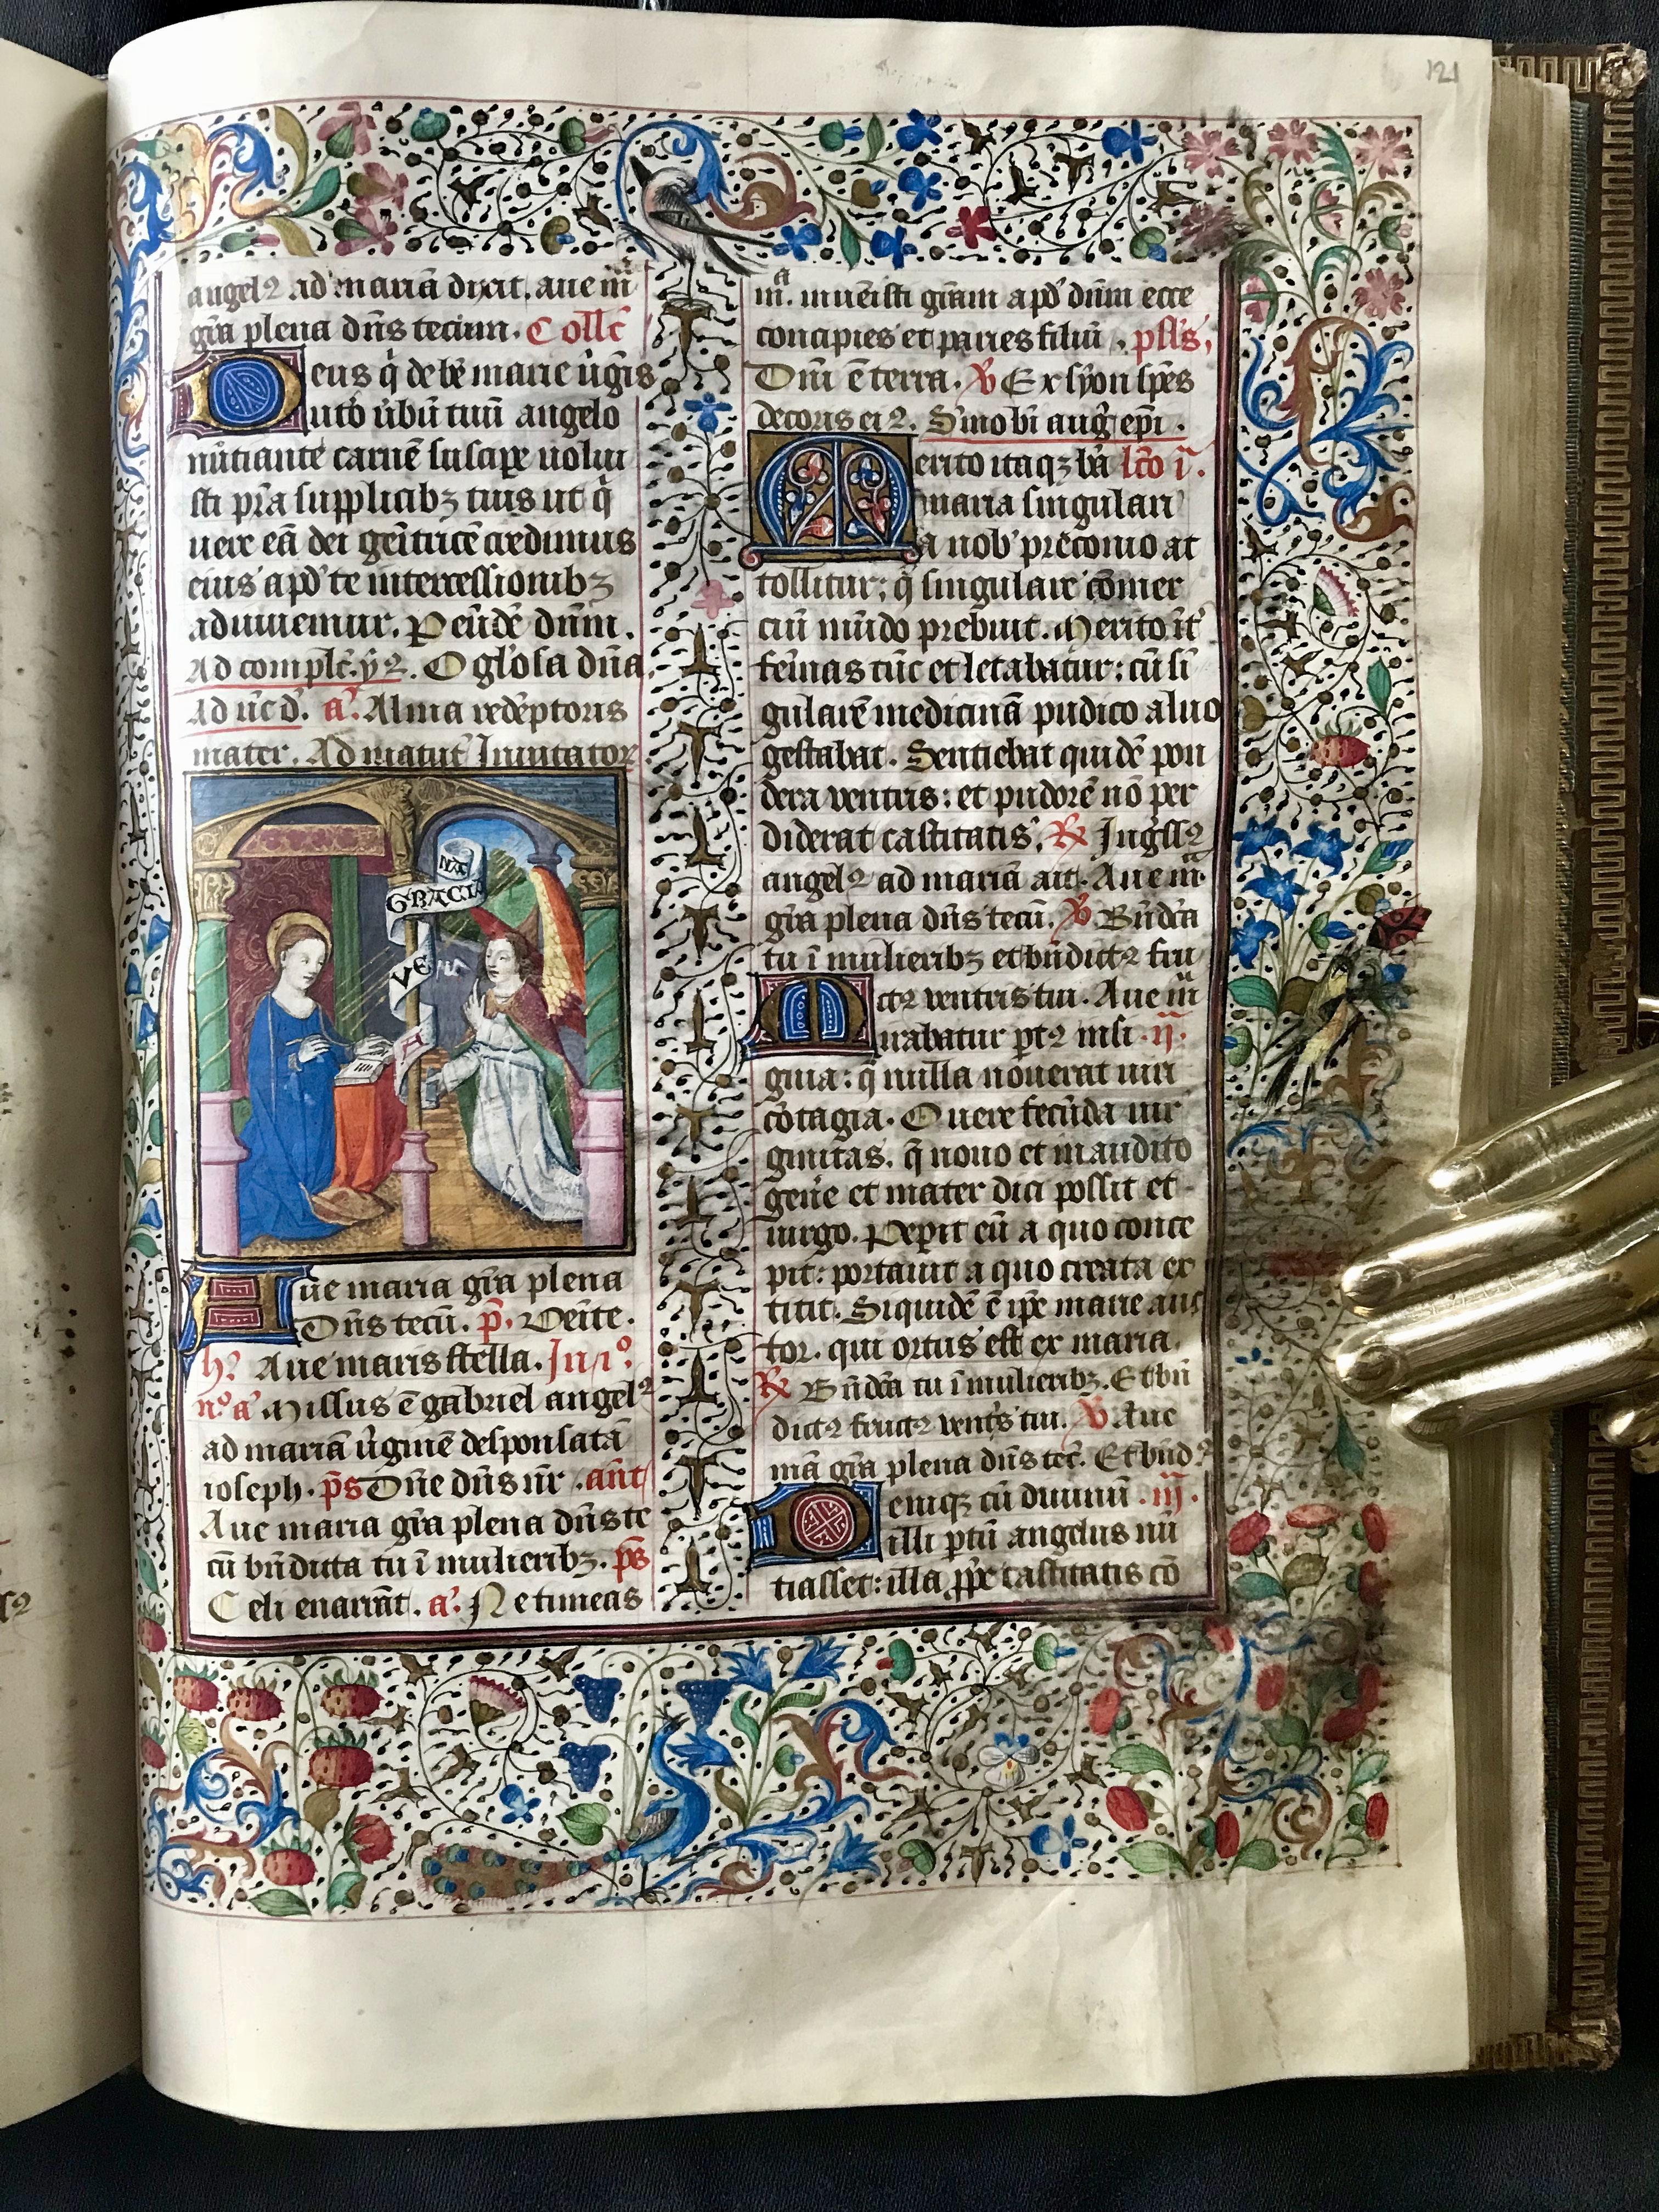 121
angelꝰ ad mariā dixit. aue mͣ
gr̄a plena dn̄s tecum. Collc̄
Deus q̇ de bē marie ûgīs
uto ûbū tuū angelo
nūtiante carnē suscipe uolui
sti pr̄a supplicibꝫ tuis ut q̇
uere eā dei genitcē credimus
eius apd̓ te intercessionibꝫ
adiuuemur. P eūdē dn̄m.
Ad complc̄. yꝰ. O glo̓sa dn̄a
Ad ûc̄ d̓. a᷑. Alma redēptoris
mater. Ad matut̄ Inuitator
NA
GRACIA
VE
A
Aue maria gr̄a plena
Dn̄s tecū. p̄. Venite.
hꝰ Aue maris stella. In .i°.
n°. a᷑ Missus ē gabriel angelꝰ
ad mariā ûginē desponsatā
ioseph. p̄s Dn̄e dn̄s nr̄. ant̄
Aue maria gr̄a plena dn̄s te
cū bn̄dicta tu ī mulieribꝫ. p̄s
Celi enarrāt. a᷑. Ne timeas
mͣ. inuēisti gr̄am apd̓ dn̄m ecce
concipies et paries filiū. pſſ̄s,
Dn̄i ē terra. ℣ Ex syon spēs
decoris eiꝰ. S̓mo bī aug᷑ ep̄i.
Merito itaqꝫ bā lc̄o ī.
maria singulari
a nob̓ preconio at
tollitur; q̄ singulare cōmer
ciū mūdo prebuit. Merito it̄
feīnas tūc et letabatur: cū sī
gularē medicinā pudico aluo
gestabat. Sentiebat quidē pon
dera ventris: et pudorē nō per
diderat castitatis. ℟ Ing᷑ssꝰ
angelꝰ ad mariā ait. Aue mͣ
gr̄a plena dn̄s tecū. ℣ Bn̄dc̄a
tu ī mulieribꝫ et bn̄dictꝰ fru
ctꝰ ventris tui. Aue mͣ
Mirabatur pt̄ꝰ insi .ij.
gnia: q̄ nulla nouerat uiri
cōtagia. O uere fecūda uir
ginitas. q̄ nouo et inaudito
genē et mater dici possit et
uirgo. Peperit eū a quo conce
pit: portauit a quo creata ex
titit. Siquidē ē ip̄e marie auc
tor. qui ortus est ex maria.
℟ Bn̄dc̄a tu ī mulieribꝫ. Et bn̄
dictꝰ fructꝰ vent̓s tui. ℣ Aue
mā gr̄a plena dn̄s tec̄. Et bnd̓ꝰ
Deniqꝫ cū diuinū .iij.
illi ptū angelus nū
tiasset: illa ꝓpe castitatis cō